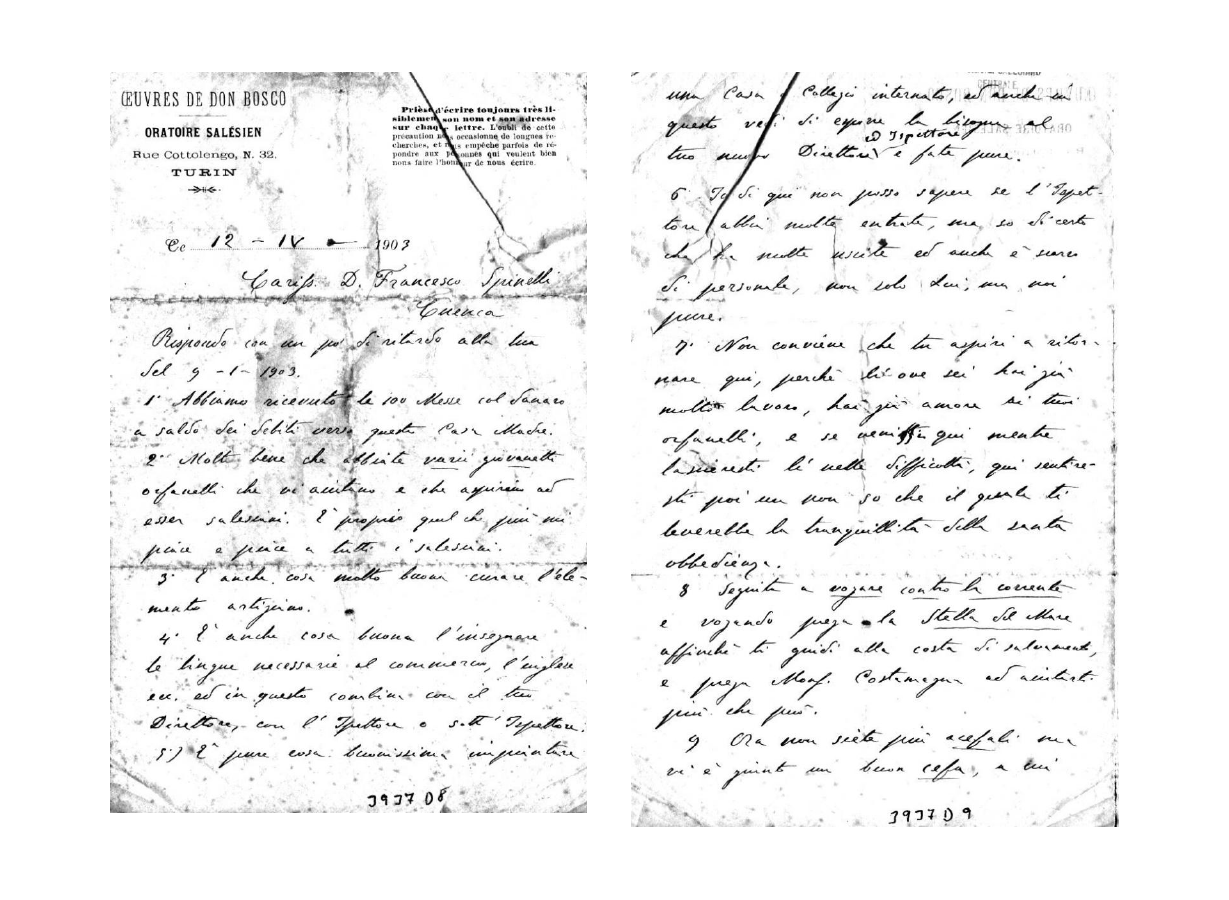 ŒUVRES DE DON BOSCO
ORATOIRE SALÉSIEN
Rue Cottolengo, N. 32.
TURIN
Prière d'écrire toujours très li-
siblement son nom et son adresse
sur chaque lettre. L'oubli de cette
précaution nous occasionne de longues re-
cherches, et nous empêche parfois de ré-
pondre aux personnes qui veulent bien
nous faire l'honneur de nous écrire.
Ce 12 - IV - 1903
Cariss. D. Francesco Spinelli
Cuenca
Rispondo con un po' di ritardo alla tua
del 9 - 1 - 1903.
1° Abbiamo ricevuto le 100 Messe col danaro
a saldo dei debiti verso questa Casa Madre.
2° Molto bene che abbiate varii giovanetti
orfanelli che vi aiutino e che aspirino ad
esser salesiani. È proprio quel che più mi
piace e piace a tutti i salesiani.
3° È anche cosa molto buona curare l'ele-
mento artigiano.
4° È anche cosa buona l'insegnare
le lingue necessarie al commercio, l'inglese
ecc. ed in questo combina con il tuo
Direttore, con l'Ispettore o sott'Ispettore.
5°) È pure cosa buonissima impiantare
3937 D8
una Casa o Collegi internato, ed anche in
questo vedi di esporre la bisogna al
ed Ispettore
tuo nuovo Direttore e fate pure.
6° Io di qui non posso sapere se l'Ispet-
tore abbia molte entrate, ma so di certo
che ha molte uscite ed anche è scarso
di personale, non solo Lui, ma noi
pure.
7° Non conviene che tu aspiri a ritor-
nare qui, perchè lì ove sei hai già
molto lavoro, hai già amore ai tuoi
orfanelli, e se venissi qui mentre
lascieresti lì nelle difficoltà, qui sentire-
sti poi un non so che il quale ti
leverebbe la tranquillità della santa
obbedienza.
8 Seguita a vogare contro la corrente
e vogando prega la Stella del Mare
affinchè ti guidi alla costa di salvamento,
e prega Mons. Costamagna ad aiutarti
più che può.
9 Ora non siete più acefali ma
vi è giunto un buon cefa, a cui
3937 D 9